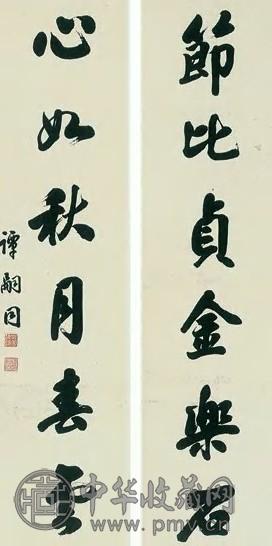 節比貞金樂石
心如秋月春雲
譚嗣同
中华收藏网
www.pmv.cn